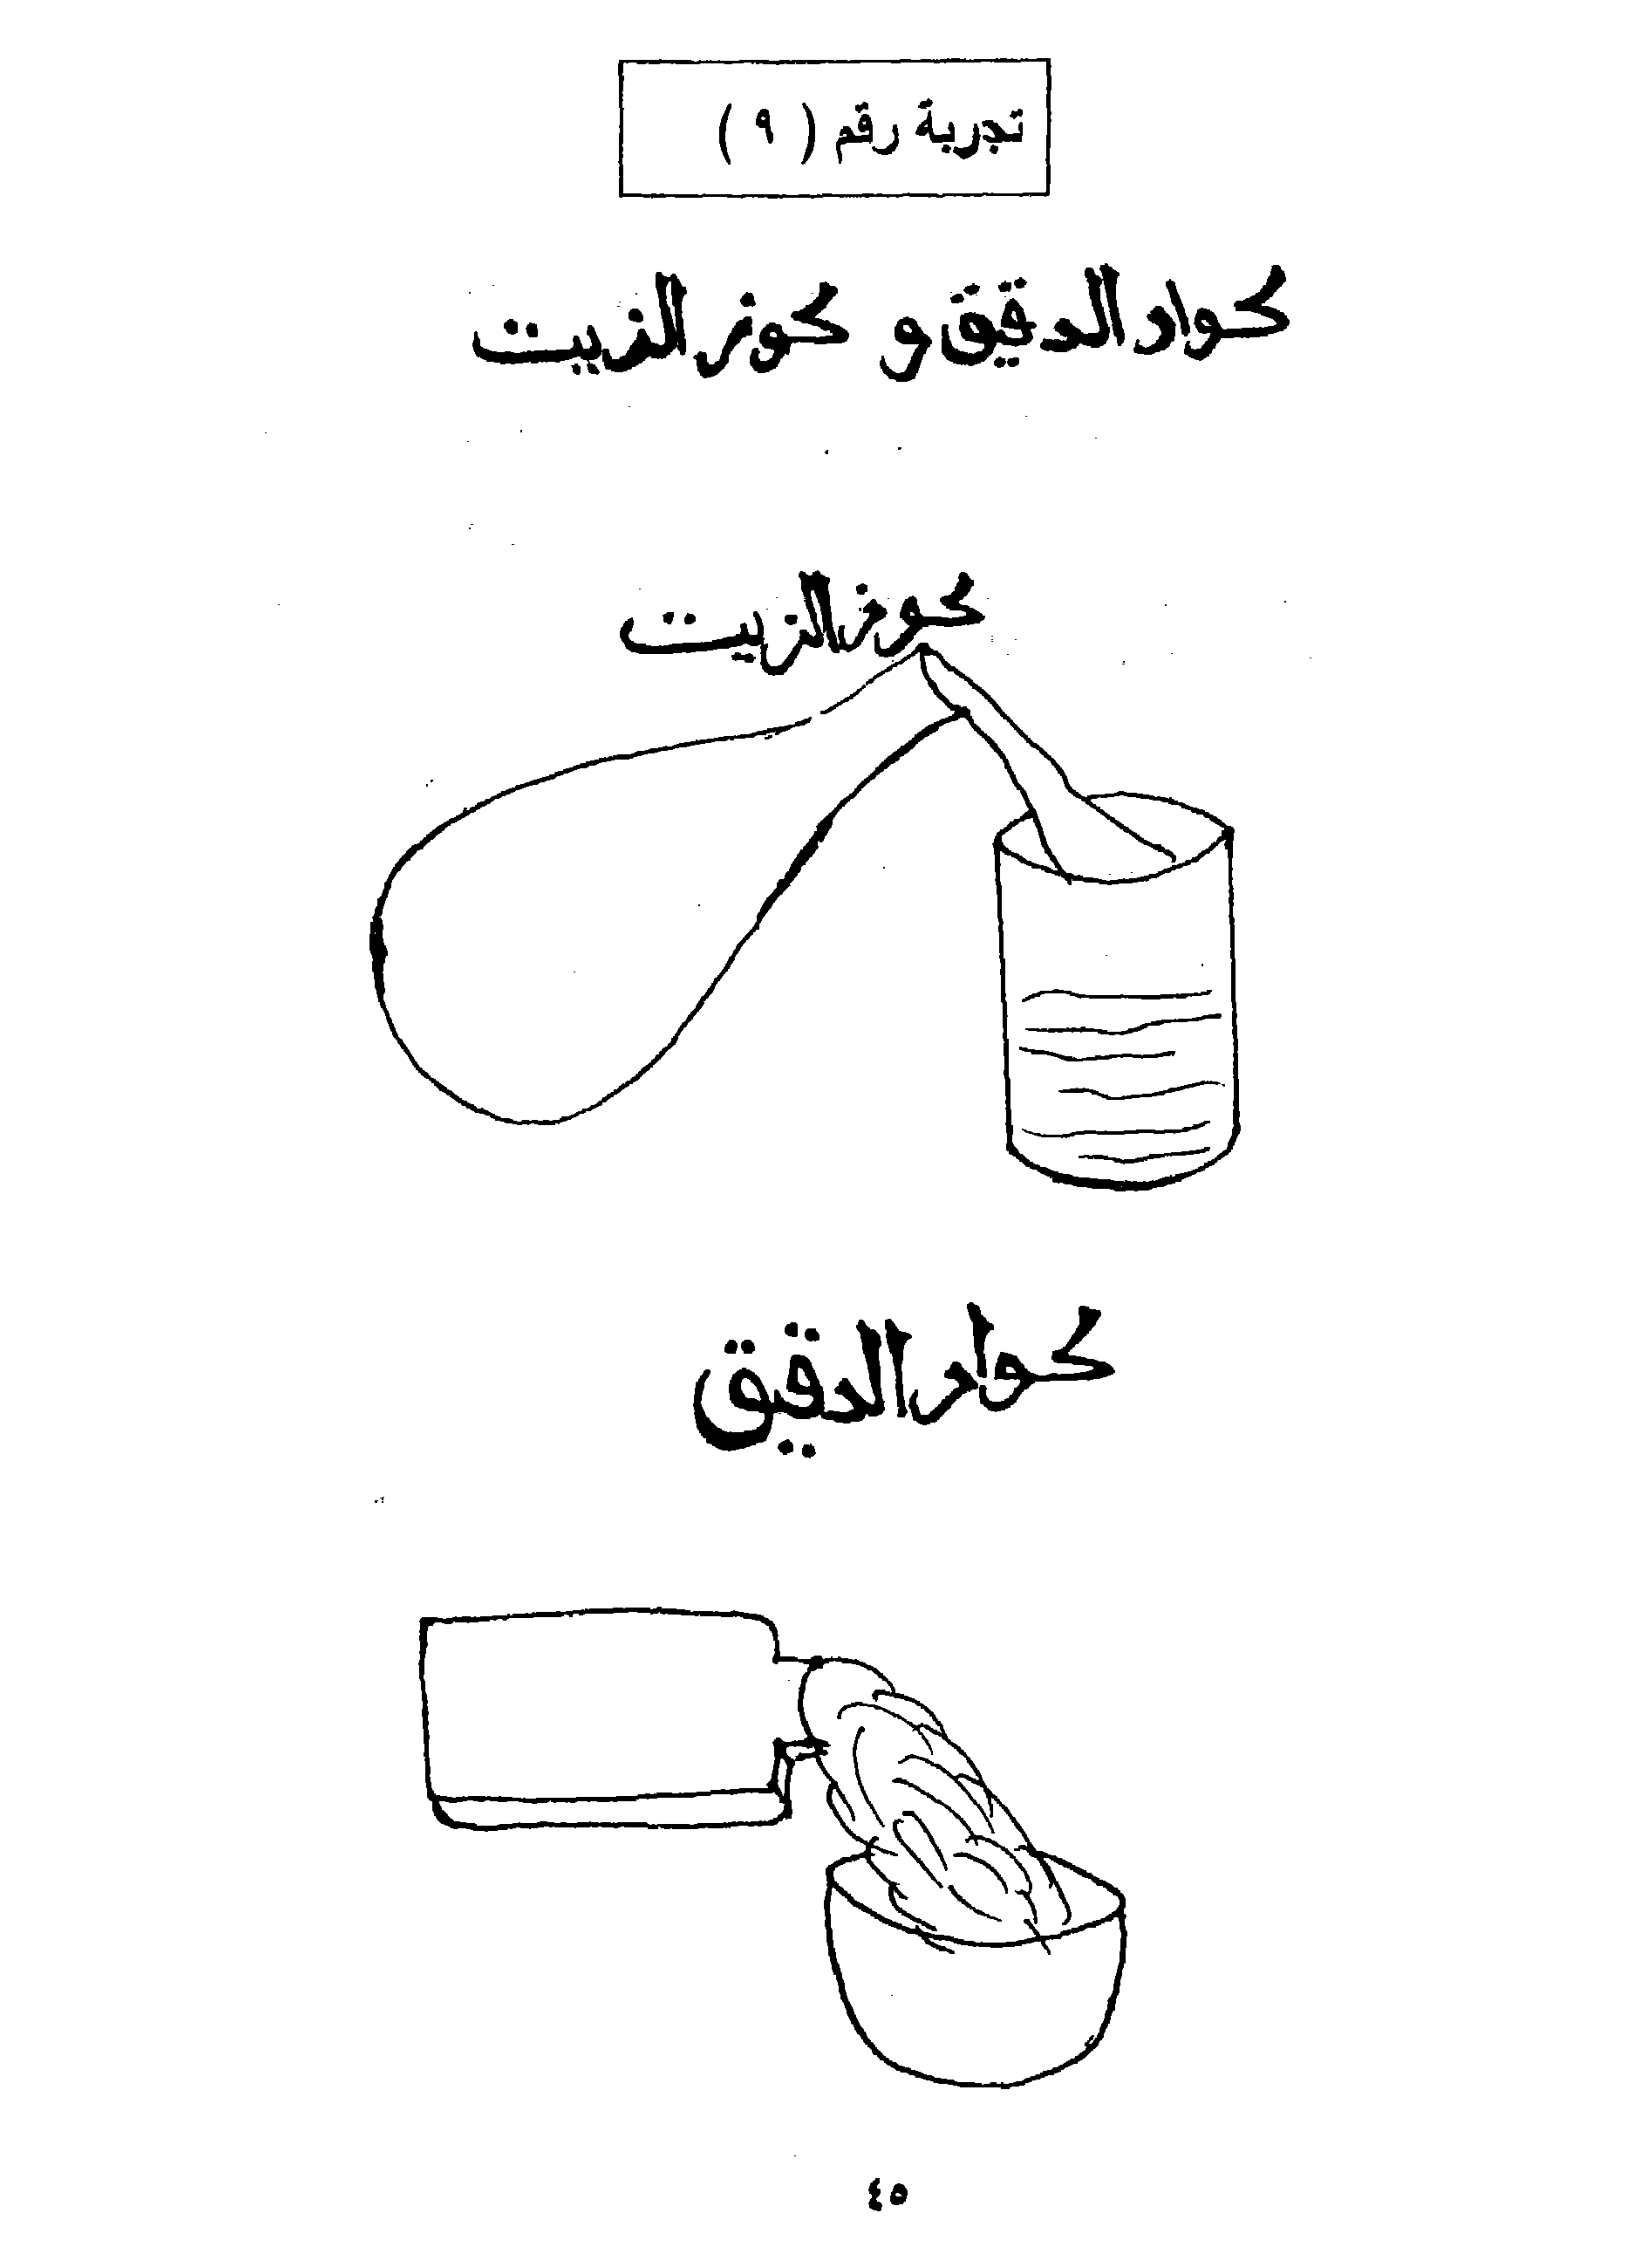 تجربة رقم ( ٩ )
كوار الدقيق و كوز الزيت
كوز الزيت
كوار الدقيق
٤٥